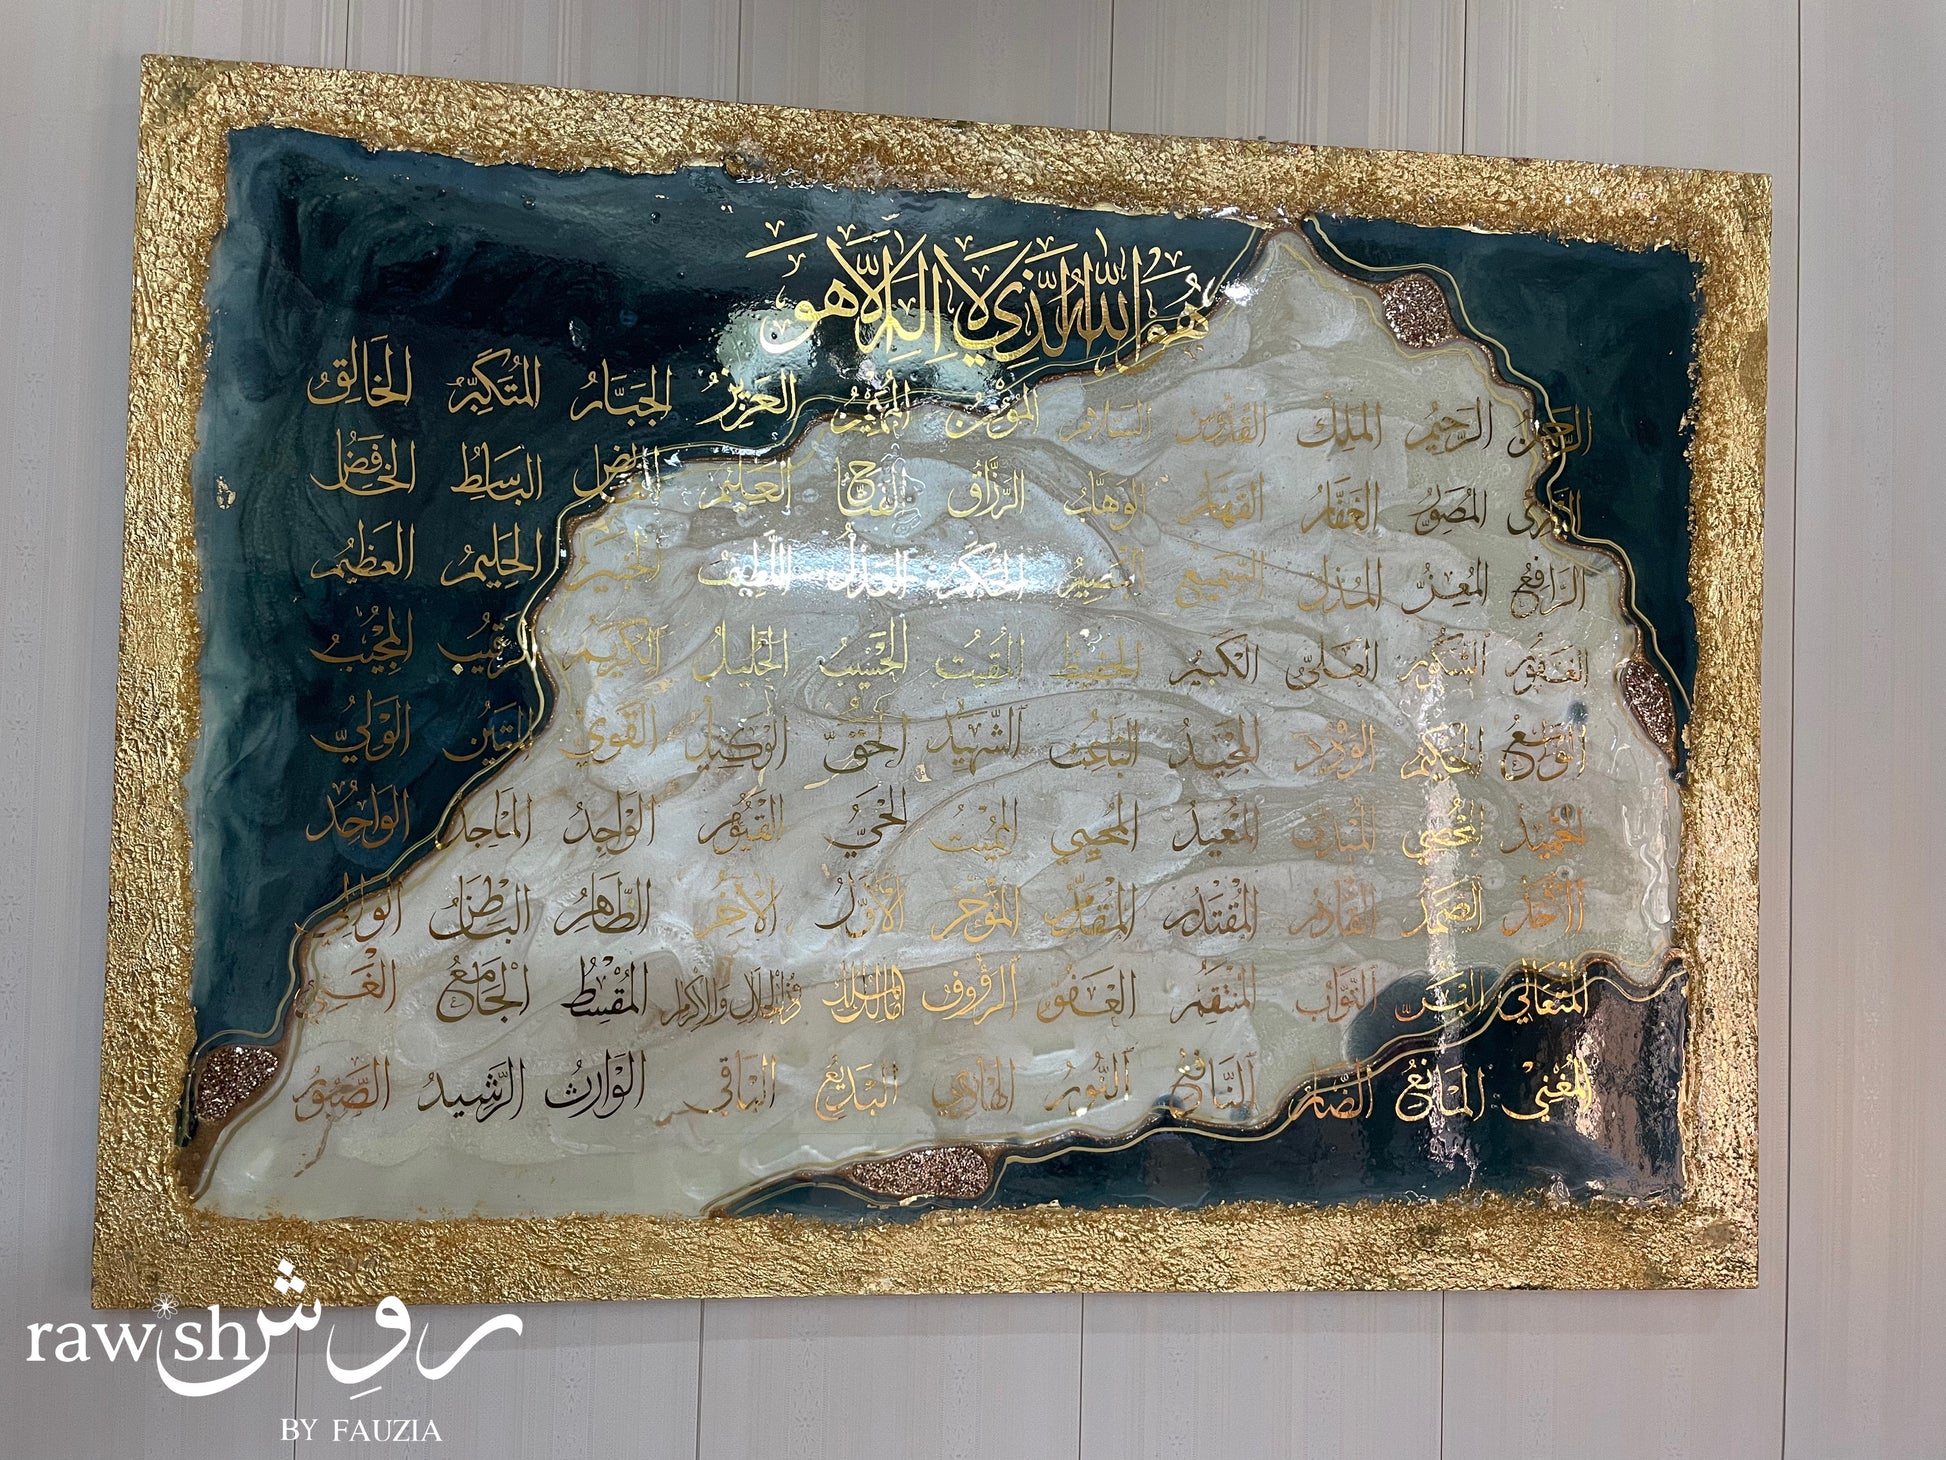 هُوَ اللهُ الَّذِي لَا إِلٰهَ إِلَّا هُوَ
الرَّحْمٰنُ الرَّحِيْمُ المَلِكُ القُدُّوْسُ السَّلَامُ المُؤْمِنُ المُهَيْمِنُ العَزِيْزُ الجَبَّارُ المُتَكَبِّرُ الخَالِقُ
البَارِئُ المُصَوِّرُ الغَفَّارُ القَهَّارُ الوَهَّابُ الرَّزَّاقُ الفَتَّاحُ العَلِيْمُ القَابِضُ البَاسِطُ الخَافِضُ
الرَّافِعُ المُعِزُّ المُذِلُّ السَّمِيْعُ البَصِيْرُ الحَكَمُ العَدْلُ اللَّطِيْفُ الخَبِيْرُ الحَلِيْمُ العَظِيْمُ
الغَفُوْرُ الشَّكُوْرُ العَلِيُّ الكَبِيْرُ الحَفِيْظُ المُقِيْتُ الحَسِيْبُ الجَلِيْلُ الكَرِيْمُ الرَّقِيْبُ المُجِيْبُ
الوَاسِعُ الحَكِيْمُ الوَدُوْدُ المَجِيْدُ البَاعِثُ الشَّهِيْدُ الحَقُّ الوَكِيْلُ القَوِيُّ المَتِيْنُ الوَلِيُّ
الحَمِيْدُ المُحْصِي المُبْدِئُ المُعِيْدُ المُحْيِي المُمِيْتُ الحَيُّ القَيُّوْمُ الوَاجِدُ المَاجِدُ الوَاحِدُ
الأَحَدُ الصَّمَدُ القَادِرُ المُقْتَدِرُ المُقَدِّمُ المُؤَخِّرُ الأَوَّلُ الآخِرُ الظَّاهِرُ البَاطِنُ الوَالِي
المُتَعَالِي البَرُّ التَّوَّابُ المُنْتَقِمُ العَفُوُّ الرَّؤُوْفُ مَالِكُ المُلْكِ ذُوْالجَلَالِ وَالإِكْرَامِ المُقْسِطُ الجَامِعُ الغَنِيُّ
المُغْنِيْ المَانِعُ الضَّارُّ النَّافِعُ النُّوْرُ الهَادِي البَدِيْعُ البَاقِي الوَارِثُ الرَّشِيْدُ الصَّبُوْرُ
rawish روِش
BY FAUZIA